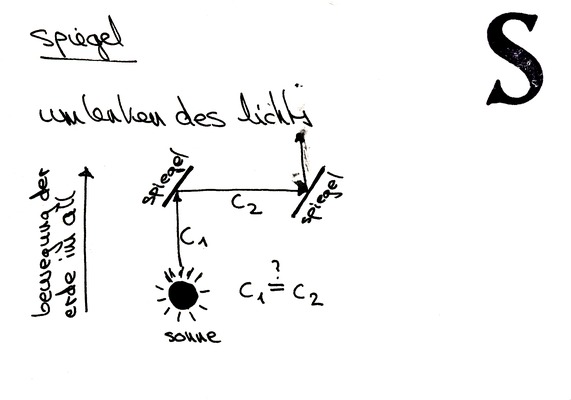 spiegel
S
umlenken des lichts
bewegung der
erde im all
spiegel
spiegel
C2
C1
?
C1 = C2
sonne